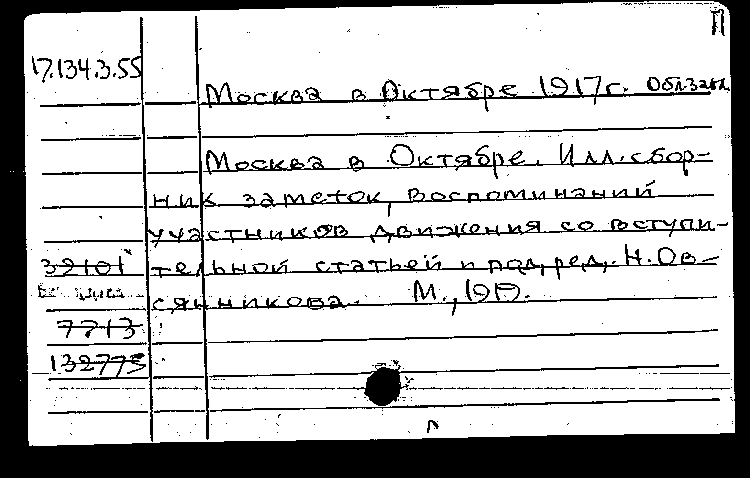 П
17.134.3.55
Москва в Октябре 1917г. Обл.загл.
Москва в Октябре. Илл. сбор=
ник заметок, воспоминаний
участников движения со вступи-
тельной статьей и под. ред. Н. Ов-
сянникова. М., 1919.
32101
7713
132775